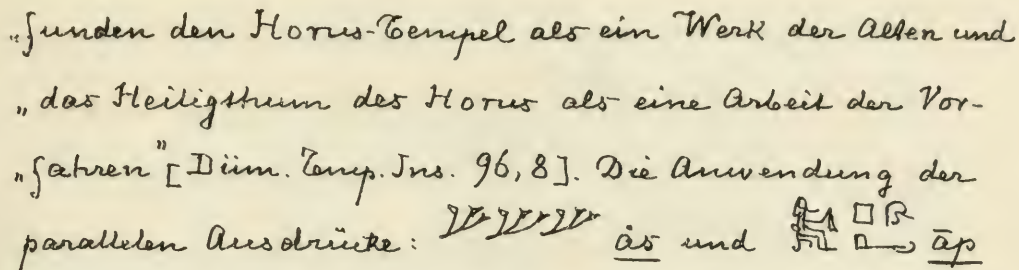 „funden den Horus-Tempel als ein Werk der Alten und
„das Heiligthum des Horus als eine Arbeit der Vor-
„fahren” [Düm. Temp. Ins. 96,8]. Die Anwendung der
parallelen Ausdrücke: ȧs und āp